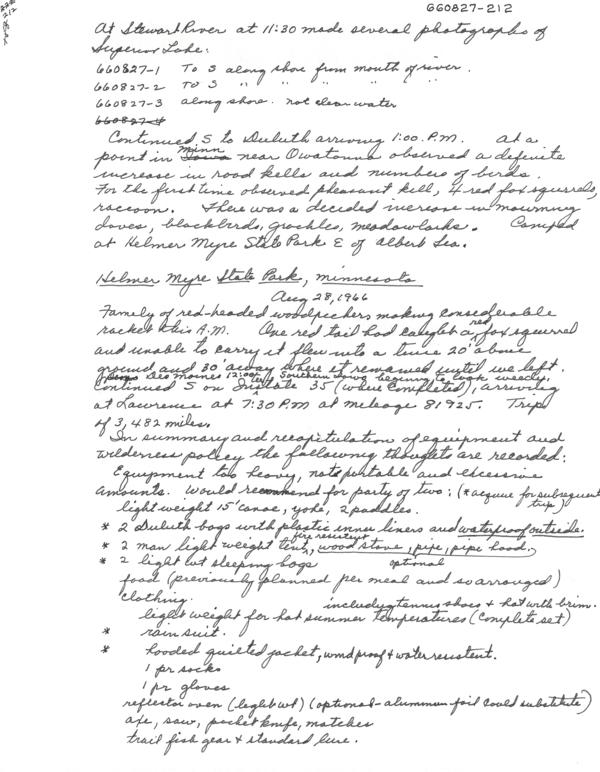 660827-212
At Stewart River at 11:30 made several photographs of
Superior Lake:
660827-1 To S along shore from mouth of river.
660827-2 To S " " " " "
660827-3 along shore. not clear water
660827-4
Continued S to Duluth arriving 1:00 P.M. At a
point in Iowa Minn near Owatonna observed a definite
increase in road kills and numbers of birds.
For the first time observed pheasant kill, 4 red fox squirrels,
raccoon. There was a decided increase in mourning
doves, blackbirds, grackles, meadowlarks. Camped
at Helmer Myre State Park E of Albert Lea.
Helmer Myre State Park, Minnesota
Aug 28, 1966
Family of red-headed woodpeckers making considerable
racket this A.M. One red tail had caught a red fox squirrel
and unable to carry it flew into a tree 20' above
ground and 30' away where it remained until we left.
Des Moines 12:00 Southern Iowa beginning to look weedy.
Continued S on Instate 35 (where completed), arriving
at Lawrence at 7:30 P.M at mileage 81925. Trip
of 3,482 miles.
In summary and recapitulation of equipment and
wilderness policy the following thoughts are recorded:
Equipment too heavy, not portable and excessive
amounts. Would recommend for party of two: (* acquire for subsequent
trip)
light weight 15' canoe, yoke, 2 paddles.
* 2 Duluth bags with plastic inner liners and waterproof outside.
* 2 man light weight tent, fire resistent wood stove, pipe, pipe hood.
* 2 light wt sleeping bags optional
food (previously planned per meal and so arranged)
clothing. including tennis shoes + hat with brim.
light weight for hot summer temperatures (complete set)
* rain suit.
* hooded quilted jacket, wind proof & water resistent.
1 pr socks
1 pr gloves
reflector oven (light wt) (optional - aluminum foil could substitute)
axe, saw, pocket knife, matches
trail fish gear & standard lure.